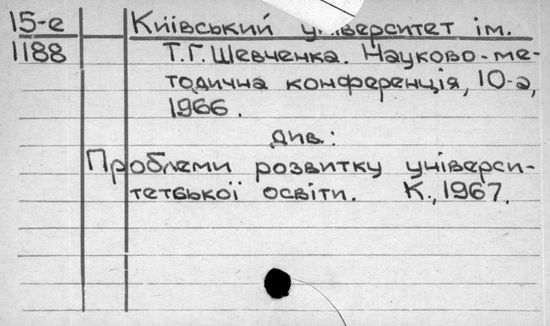 15-е Київський університет ім.
1188 Т.Г. Шевченка. Науково-ме-
тодична конференція, 10-а,
1966.
див.:
Проблеми розвитку універси-
тетської освіти. К., 1967.